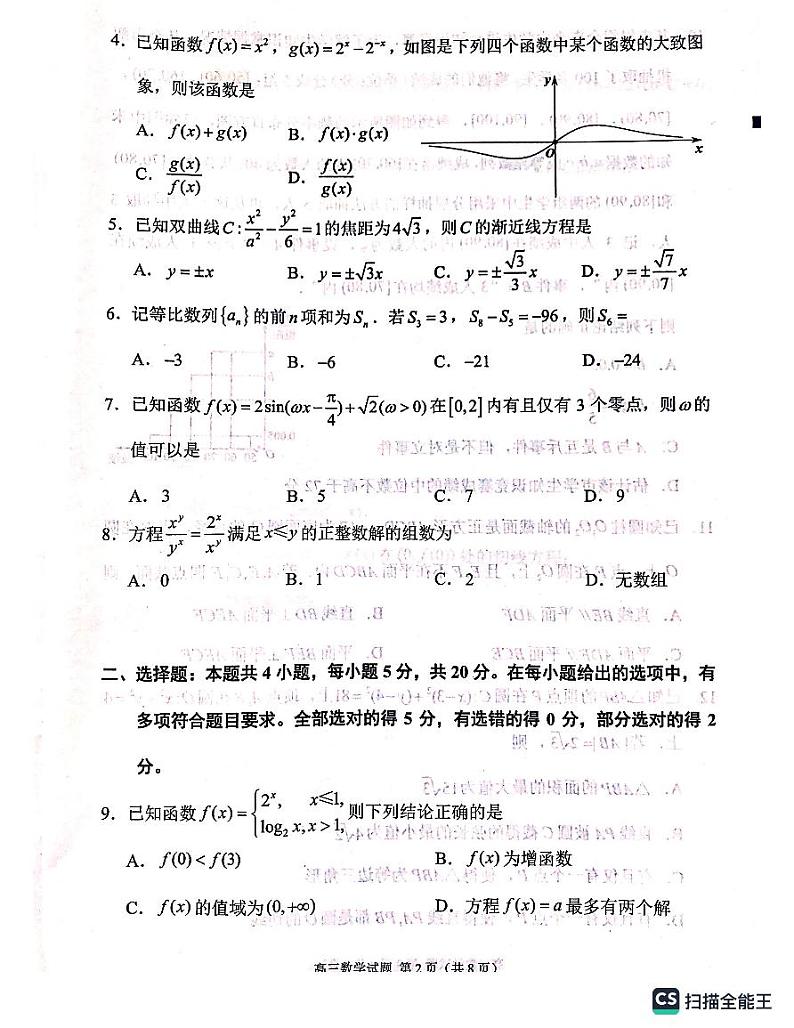 4．已知函数 f(x)=x²，g(x)=2ˣ−2⁻ˣ，如图是下列四个函数中某个函数的大致图
象，则该函数是
y
A．f(x)+g(x)　B．f(x)·g(x)
O　x
C．g(x)/f(x)　D．f(x)/g(x)
5．已知双曲线C：x²/a²−y²/6=1的焦距为4√3，则C的渐近线方程是
A．y=±x　B．y=±√3x　C．y=±(√3/3)x　D．y=±(√7/7)x
6．记等比数列{aₙ}的前n项和为Sₙ．若S₃=3，S₈−S₅=−96，则S₆=
A．−3　B．−6　C．−21　D．−24
7．已知函数f(x)=2sin(ωx−π/4)+√2(ω>0)在[0,2]内有且仅有 3 个零点，则ω的
值可以是
A．3　B．5　C．7　D．9
8．方程 x^y/y^x=2^x/x^y 满足x⩽y的正整数解的组数为
A．0　B．1　C．2　D．无数组
二、选择题：本题共 4 小题，每小题 5 分，共 20 分。在每小题给出的选项中，有
多项符合题目要求。全部选对的得 5 分，有选错的得 0 分，部分选对的得 2
分。
9．已知函数f(x)={2ˣ, x⩽1, log₂x, x>1, 则下列结论正确的是
A．f(0)<f(3)　B．f(x)为增函数
C．f(x)的值域为(0,+∞)　D．方程f(x)=a最多有两个解
高三数学试题 第 2 页（共 8 页）
CS 扫描全能王